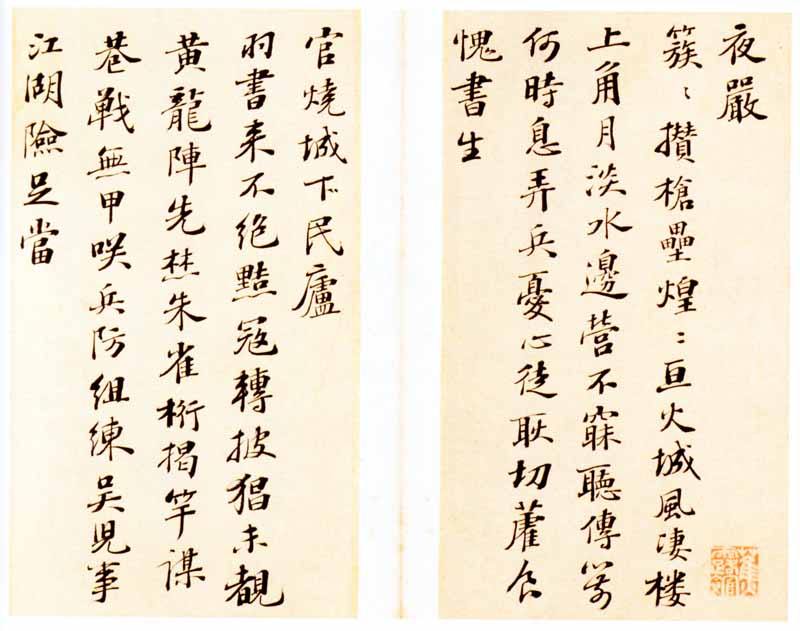 夜嚴
簇〻攢槍壘煌〻亘火城風淒楼
上角月淡水邊營不寐聽傳箭
何時息弄兵憂心徒耿切藿食
愧書生
官燒城下民廬
羽書来不绝黠寇轉披猖未覩
黄龍陣先焚朱雀桁揭竿謀
巷戰無甲唉兵防组練吴兒事
江湖險足當